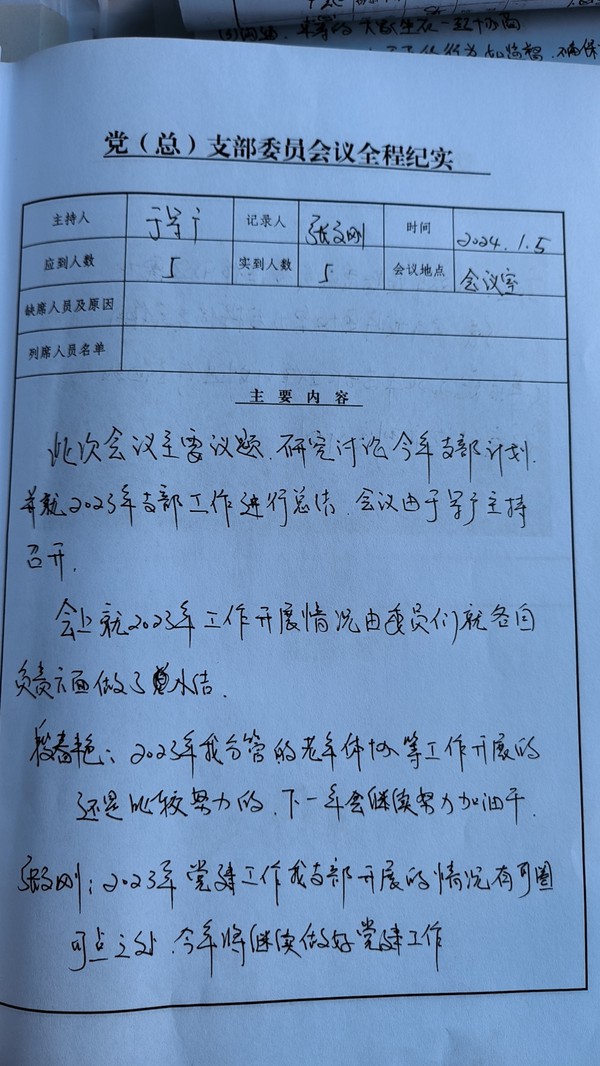 党（总）支部委员会议全程纪实
主持人 于学广 记录人 张文刚 时间 2024.1.5
应到人数 5 实到人数 5 会议地点 会议室
缺席人员及原因
列席人员名单
主要内容
此次会议主要议题，研究讨论今年支部计划．
并就2023年支部工作进行总结．会议由于学广主持
召开．
会上就2023年工作开展情况由委员们就各自
负责方面做了小结．
段春艳：2023年我分管的老年体协等工作开展的
还是比较努力的．下一年会继续努力加油干．
张文刚：2023年党建工作我支部开展的情况有可圈
可点之处．今年将继续做好党建工作